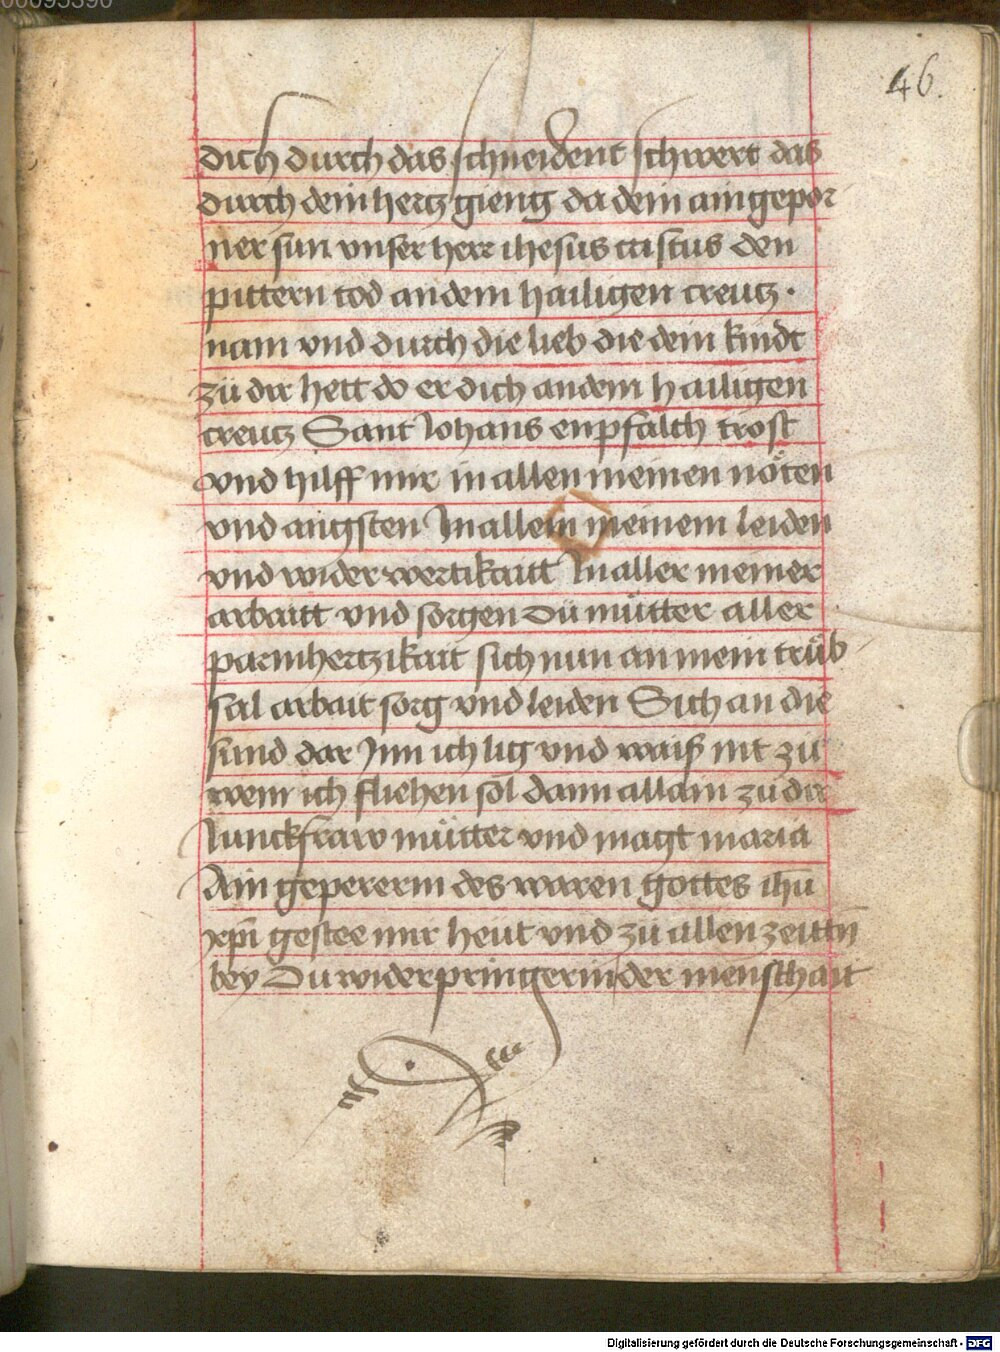 00095390
46.
dich durch das schneident schwert das
durch dein hertz gieng da dein aingepor
ner sun vnser herr ihesus cristus den
pittern tod an dem hailigen creutz ·
nam vnd durch die lieb die dein kindt
zü dir hett do er dich an dem hailigen
creutz Sant Johans enpfalch trost
vnd hilff mir in allen meinen nöten
vnd angsten In allem meinem leiden
vnd widerwertikaitt In aller meiner
arbaitt vnd sorgen Dü mütter aller
parmhertzikait sich nun an mein trüb
sal arbait sorg vnd leiden Sich an die
sünd dar Jnn ich lig vnd waiß nit zü
wem ich fliehen sol dann allain zü dir
Junckfraw mütter vnd magt maria
Ain gepererin des waren gottes ihū
xpī gestee mir heüt vnd zü allen zeittn̄
bey Du widerpringerin der menschait
Digitalisierung gefördert durch die Deutsche Forschungsgemeinschaft - DFG